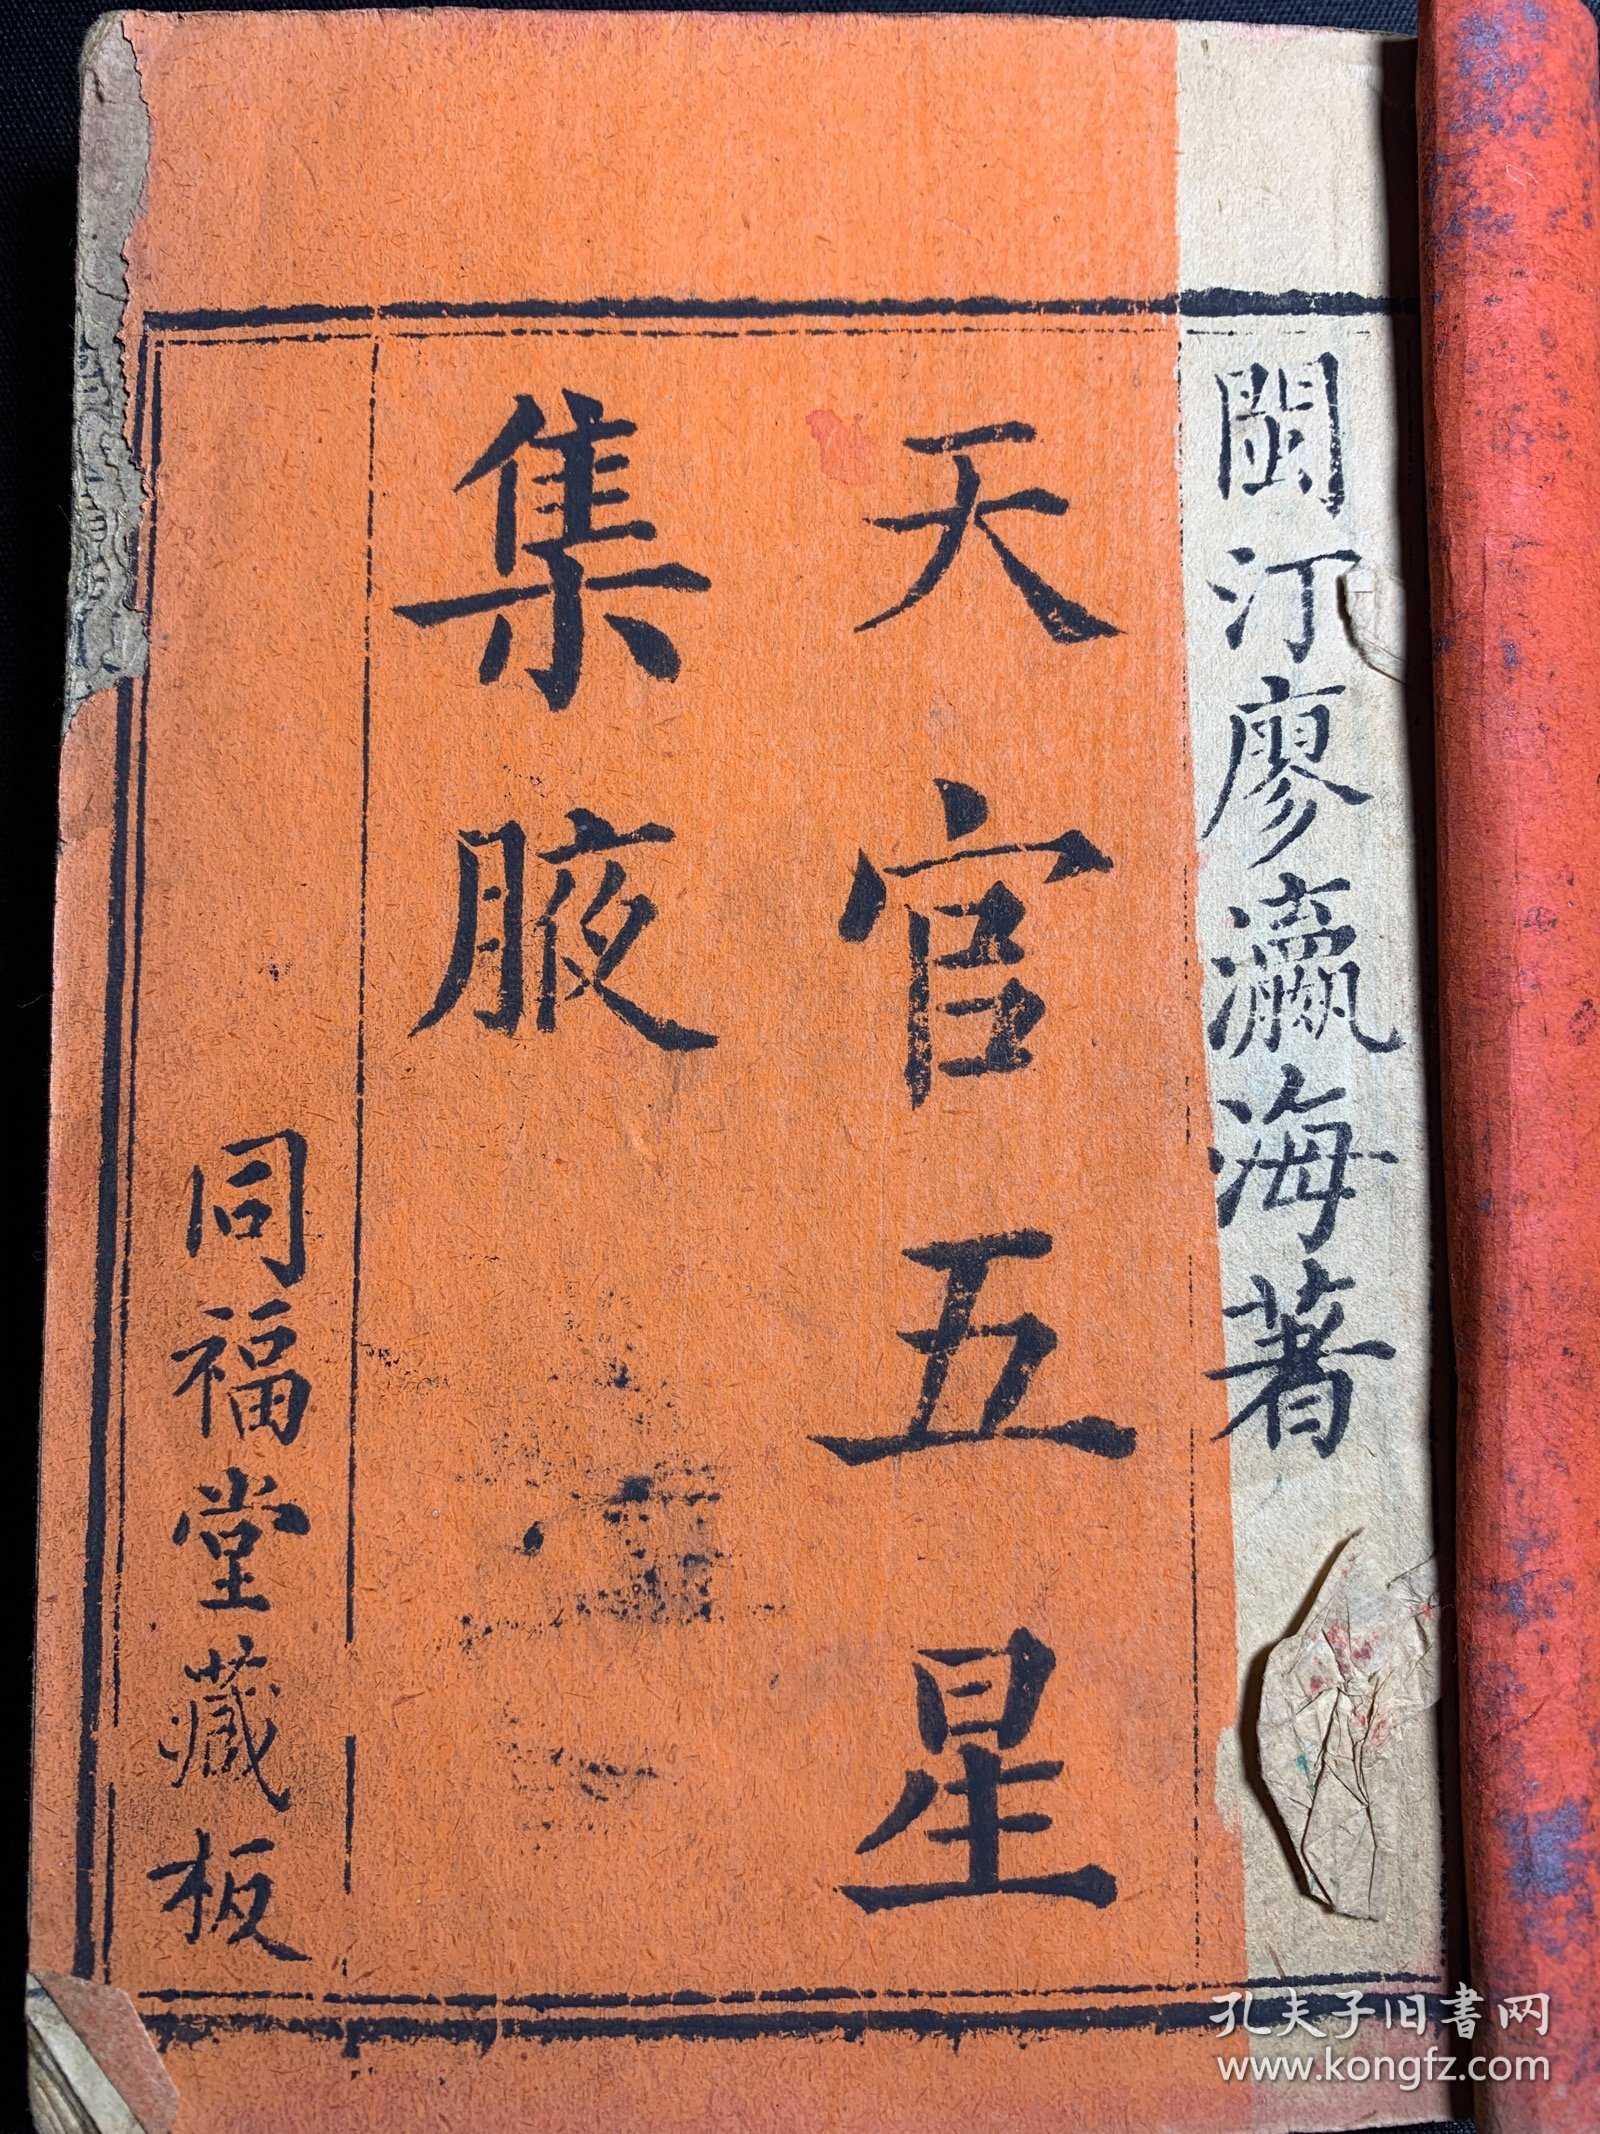 閩汀廖瀛海著
天官五星
集腋
同福堂藏板
孔夫子旧書网
www.kongfz.com